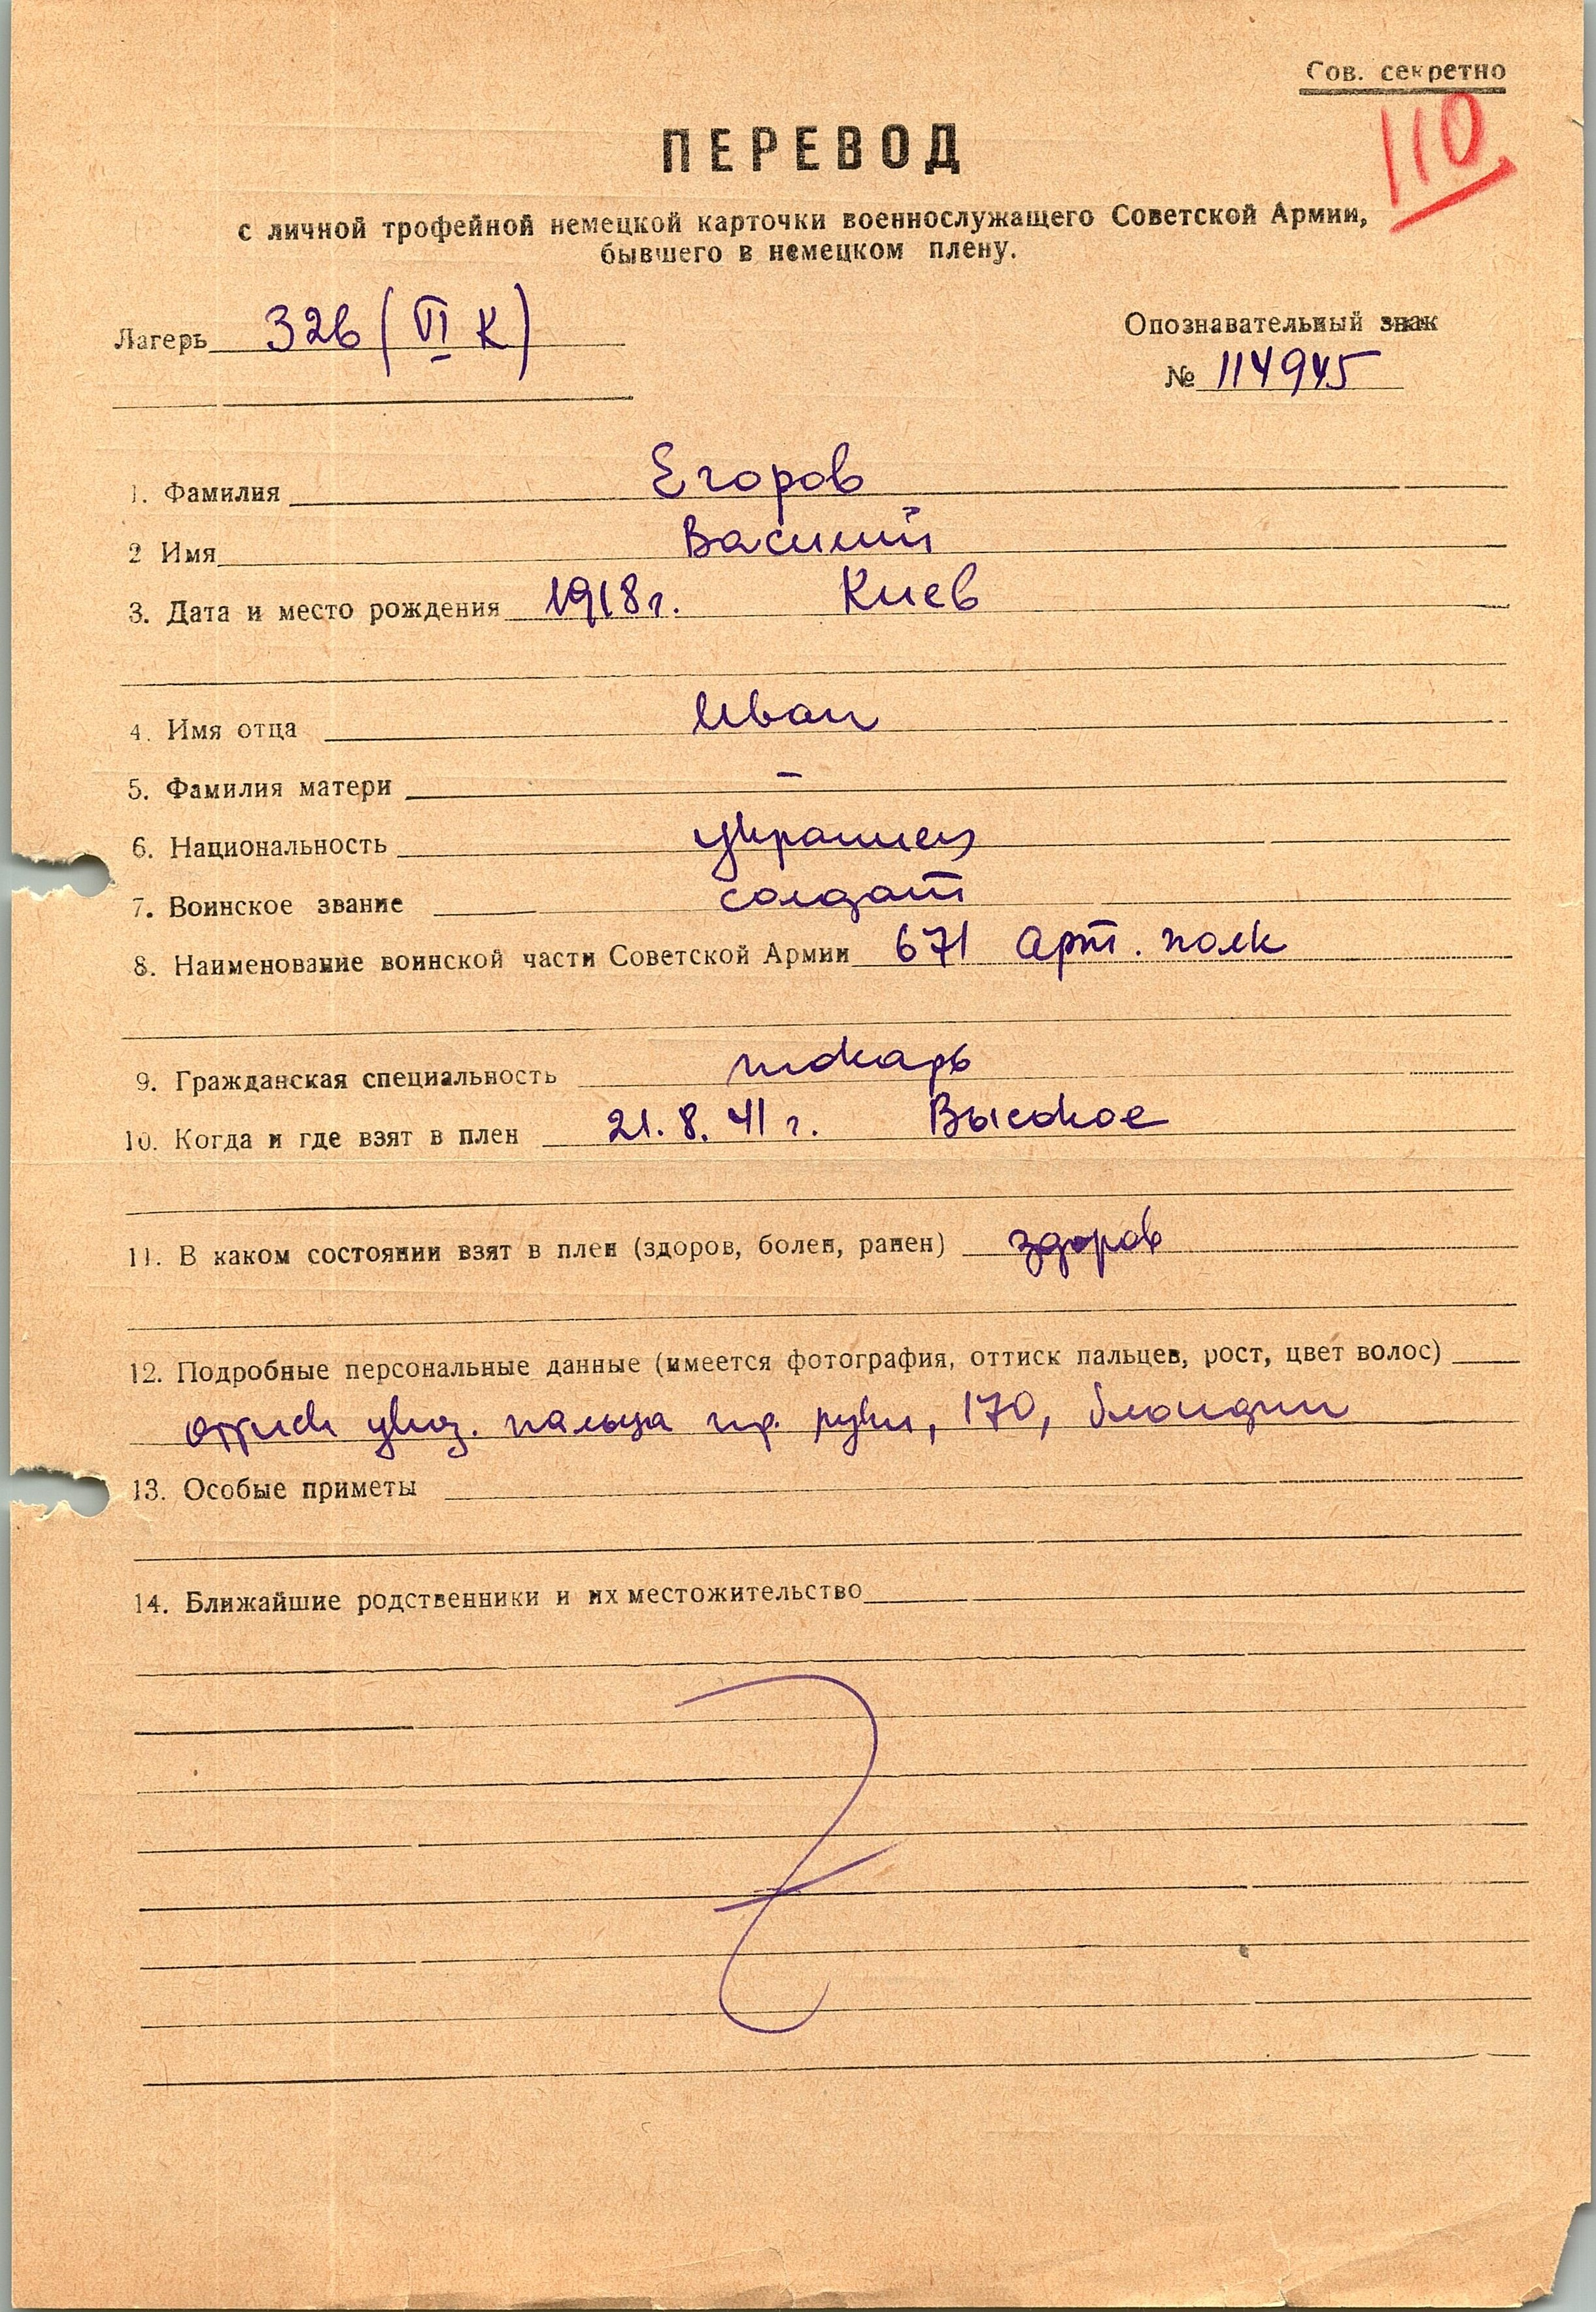 Сов. секретно
110
ПЕРЕВОД
с личной трофейной немецкой карточки военнослужащего Советской Армии,
бывшего в немецком плену.
Лагерь 326 (VI К)
Опознавательный знак
№ 114945
1. Фамилия Егоров
2 Имя Василий
3. Дата и место рождения 1918 г. Киев
4. Имя отца Иван
5. Фамилия матери –
6. Национальность украинец
7. Воинское звание солдат
8. Наименование воинской части Советской Армии 671 Арт. полк
9. Гражданская специальность токарь
10. Когда и где взят в плен 21.8.41 г. Высокое
11. В каком состоянии взят в плен (здоров, болен, ранен) здоров
12. Подробные персональные данные (имеется фотография, оттиск пальцев, рост, цвет волос)
оттиск указ. пальца пр. руки, 170, блондин
13. Особые приметы
14. Ближайшие родственники и их местожительство